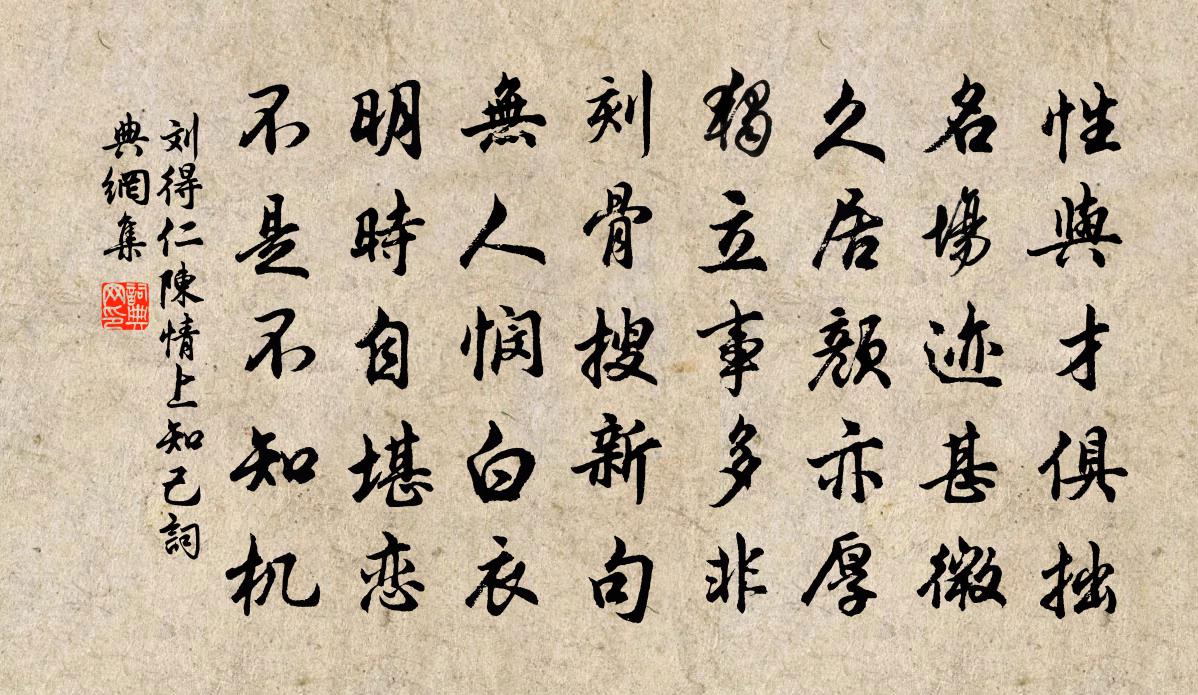 性與才俱拙
名場迹甚微
久居顏亦厚
獨立事多非
刻骨搜新句
無人憫白衣
明時自堪恋
不是不知机
刘得仁陳情上知己詞
典網集
詞典网印